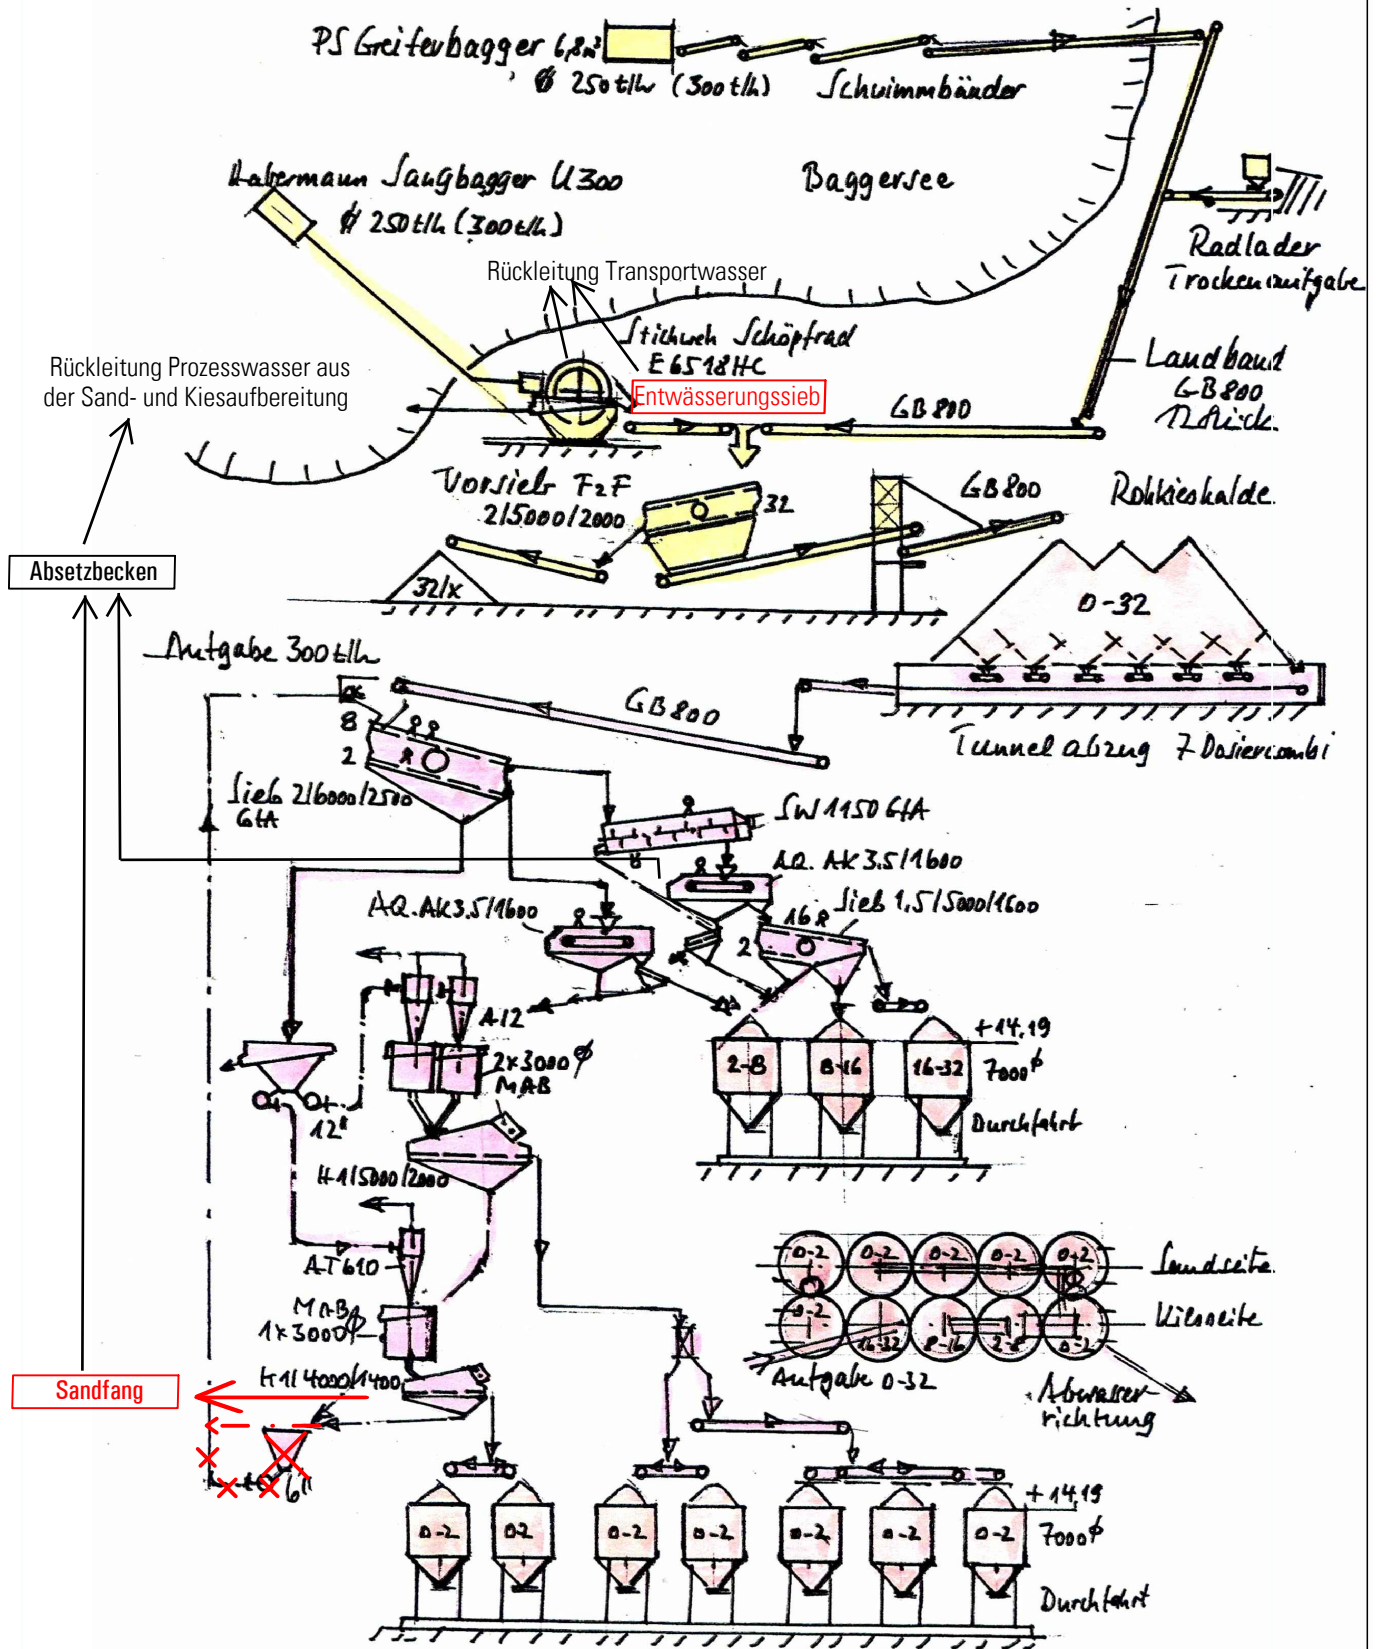 PS Greiferbagger 6,8m³
Ø 250t/h (300t/h)
Schwimmbänder
Habermann Saugbagger U300
Ø 250t/h (300t/h)
Baggersee
Radlader
Trockenaufgabe
Rückleitung Transportwasser
Stichweh Schöpfrad
E6518HC
Entwässerungssieb
Landband
GB800
GB800
Rückleitung Prozesswasser aus
der Sand- und Kiesaufbereitung
Vorsieb F2F
2/5000/2000
32
GB800
Rohkieshalde
Absetzbecken
32/x
0-32
Aufgabe 300t/h
GB800
Tunnelabzug 7 Dosiercombi
8
2
Sieb 2/6000/2500
GtA
SW1150 GtA
8
AQ. AK3.5/1600
AQ. AK3.5/1600
Sieb 1,5/5000/1600
16
2
A12
2x3000Ø
MAB
+14,19
2-8
8-16
16-32
7000Ø
Durchfahrt
12"
H1/5000/2000
AT610
MAB
1x3000Ø
0-2
0-2
0-2
0-2
0-2
Sandseite
0-2
16-32
8-16
2-8
0-2
Kiesseite
Aufgabe 0-32
Abwasser-
richtung
Sandfang
H1/4000/1400
6"
+14,19
0-2
0-2
0-2
0-2
0-2
0-2
0-2
7000Ø
Durchfahrt